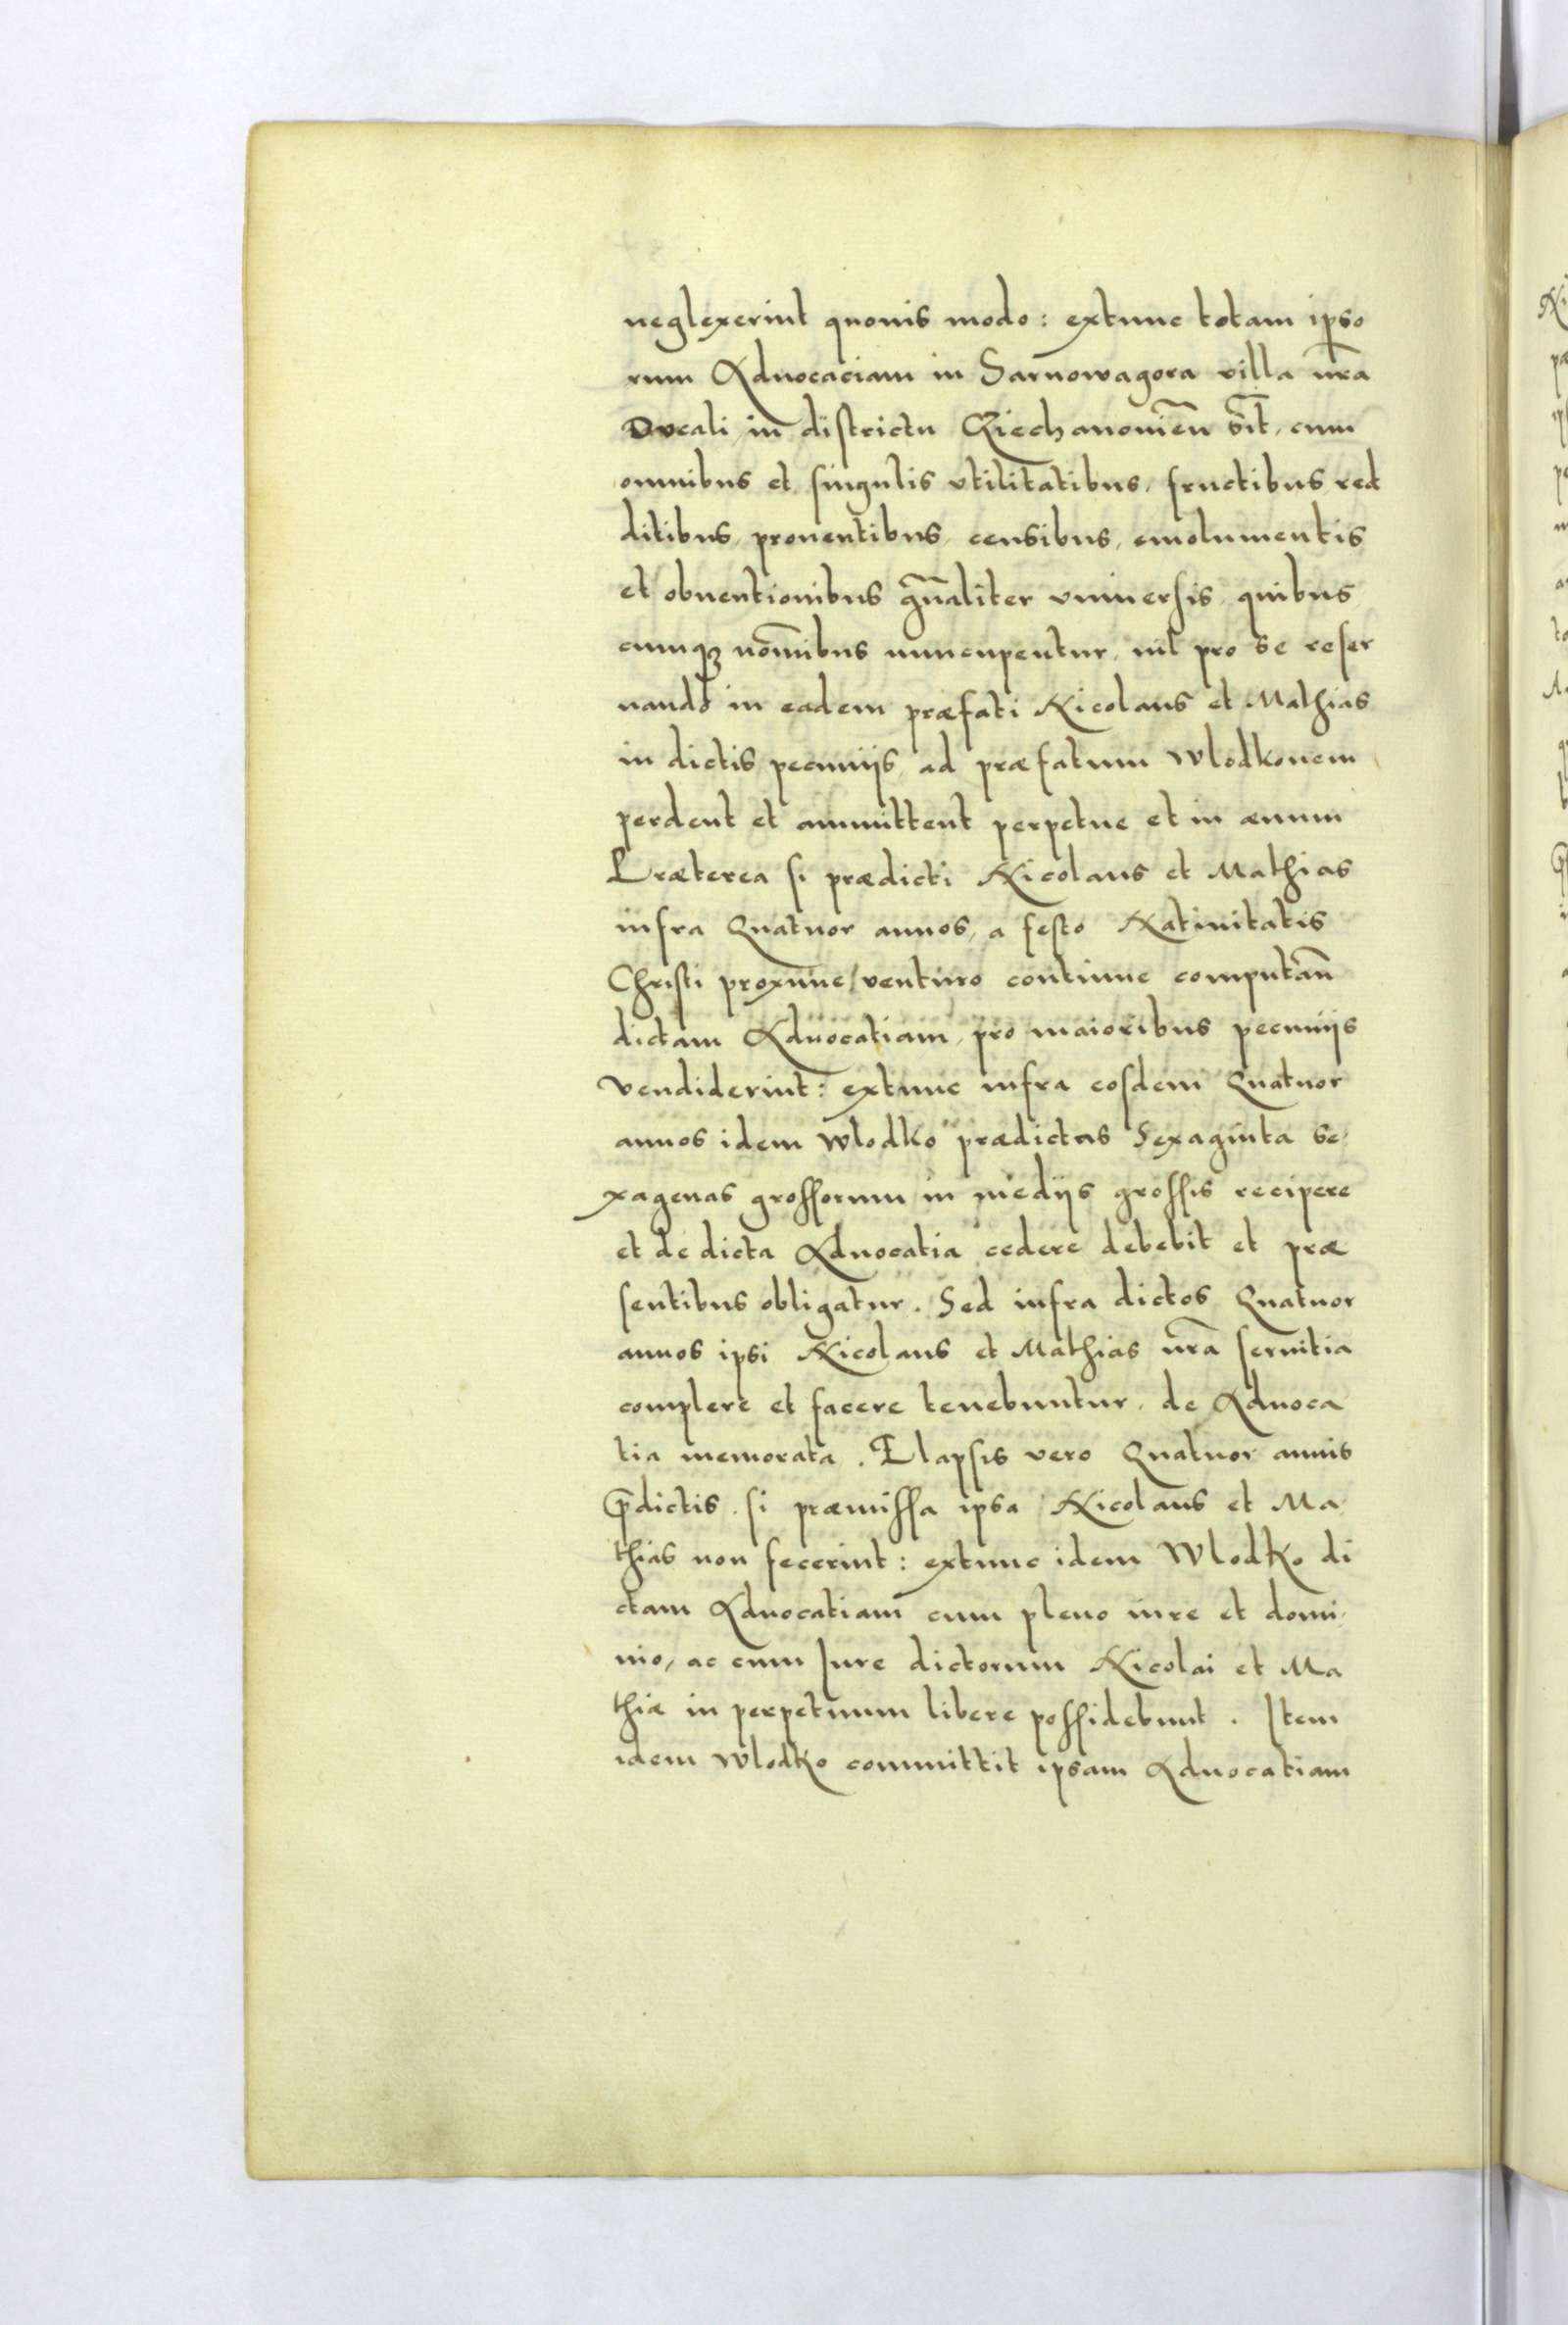 neglexerint quouis modo: extunc totam ipso
rum Aduocaciam in Sarnowagora villa nr̃a
Ducali in districtu Cziechanouien̄ sit̄, cum
omnibus et singulis vtilitatibus, fructibus red
ditibus, prouentibus, censibus, emolumentis
et obuentionibus gn̄aliter vniuersis, quibus
cumqꝫ nom̄ibus nuncupentur, nil pro se reser
uando in eadem præfati Nicolaus et Mathias
in dictis pecunijs, ad præfatum Wlodkonem
perdent et ammittent perpetue et in æuum
Præterea si prædicti Nicolaus et Mathias
infra Quatuor annos, a festo Natiuitatis
Christi proxime venturo continue computan̄
dictam Aduocatiam, pro maioribus pecunijs
vendiderint: extunc infra eosdem Quatuor
annos idem Wlodko prædictas Sexaginta se
xagenas grossorum in medijs grossis recipere
et de dicta Aduocatia cedere debebit et præ
sentibus obligatur. Sed infra dictos Quatuor
annos ipsi Nicolaus et Mathias nr̃a seruitia
complere et facere tenebuntur, de Aduoca
tia memorata. Elapsis vero Quatuor annis
p̄dictis, si præmissa ipsa Nicolaus et Ma
thias non fecerint: extunc idem Wlodko di
ctam Aduocatiam cum pleno iure et domi
nio, ac cum Iure dictorum Nicolai et Ma
thiæ in perpetuum libere possidebunt. Item
idem Wlodko committit ipsam Aduocatiam